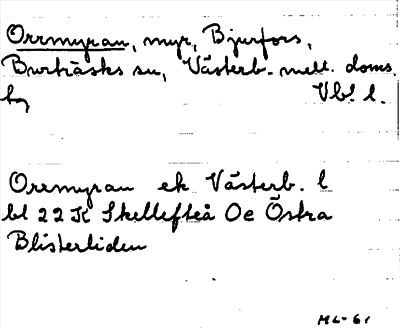 Orrmyran, myr, Bjurfors,
Burträsks sn, Västerb. mell. doms.
hg Vbl. l.
Orrmyran ek Västerb. l
bl 22 K Skellefteå Oe Östra
Blisterliden
ML-61